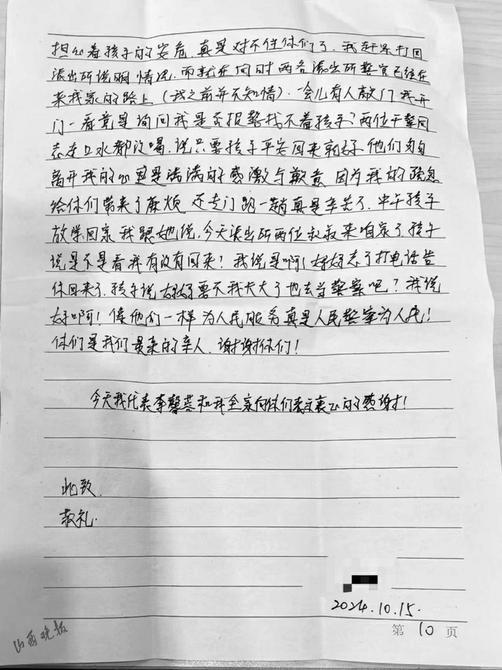 担心着孩子的安危,真是对不住你们了,我赶紧打回
派出所说明情况,而就在同时两名派出所警官已经在
来我家的路上(我之前并不知情).一会儿有人敲门我开
门一看竟是询问我是否报警找不着孩子?两位干警同
志连口水都没喝,说只要孩子平安回来就好.他们
离开我的心里是满满的感激与歉意,因为我的疏忽
给你们带来了麻烦,还专门跑一趟真是辛苦了.中午孩子
放学回家,我跟她说,今天派出所两位叔叔来咱家了,孩子
说是不是看我有没有回来?我说是啊!妈妈忘了打电话告
你回来了.孩子说妈妈要不我长大了也去当警察吧?我说
好啊!像他们一样为人民服务真是人民警察为人民!
你们是我们最亲的亲人.谢谢你们!
今天我代表李馨芸和我全家向你们表示衷心的感谢!
此致
敬礼.
2024.10.15.
第10页
山西晚报